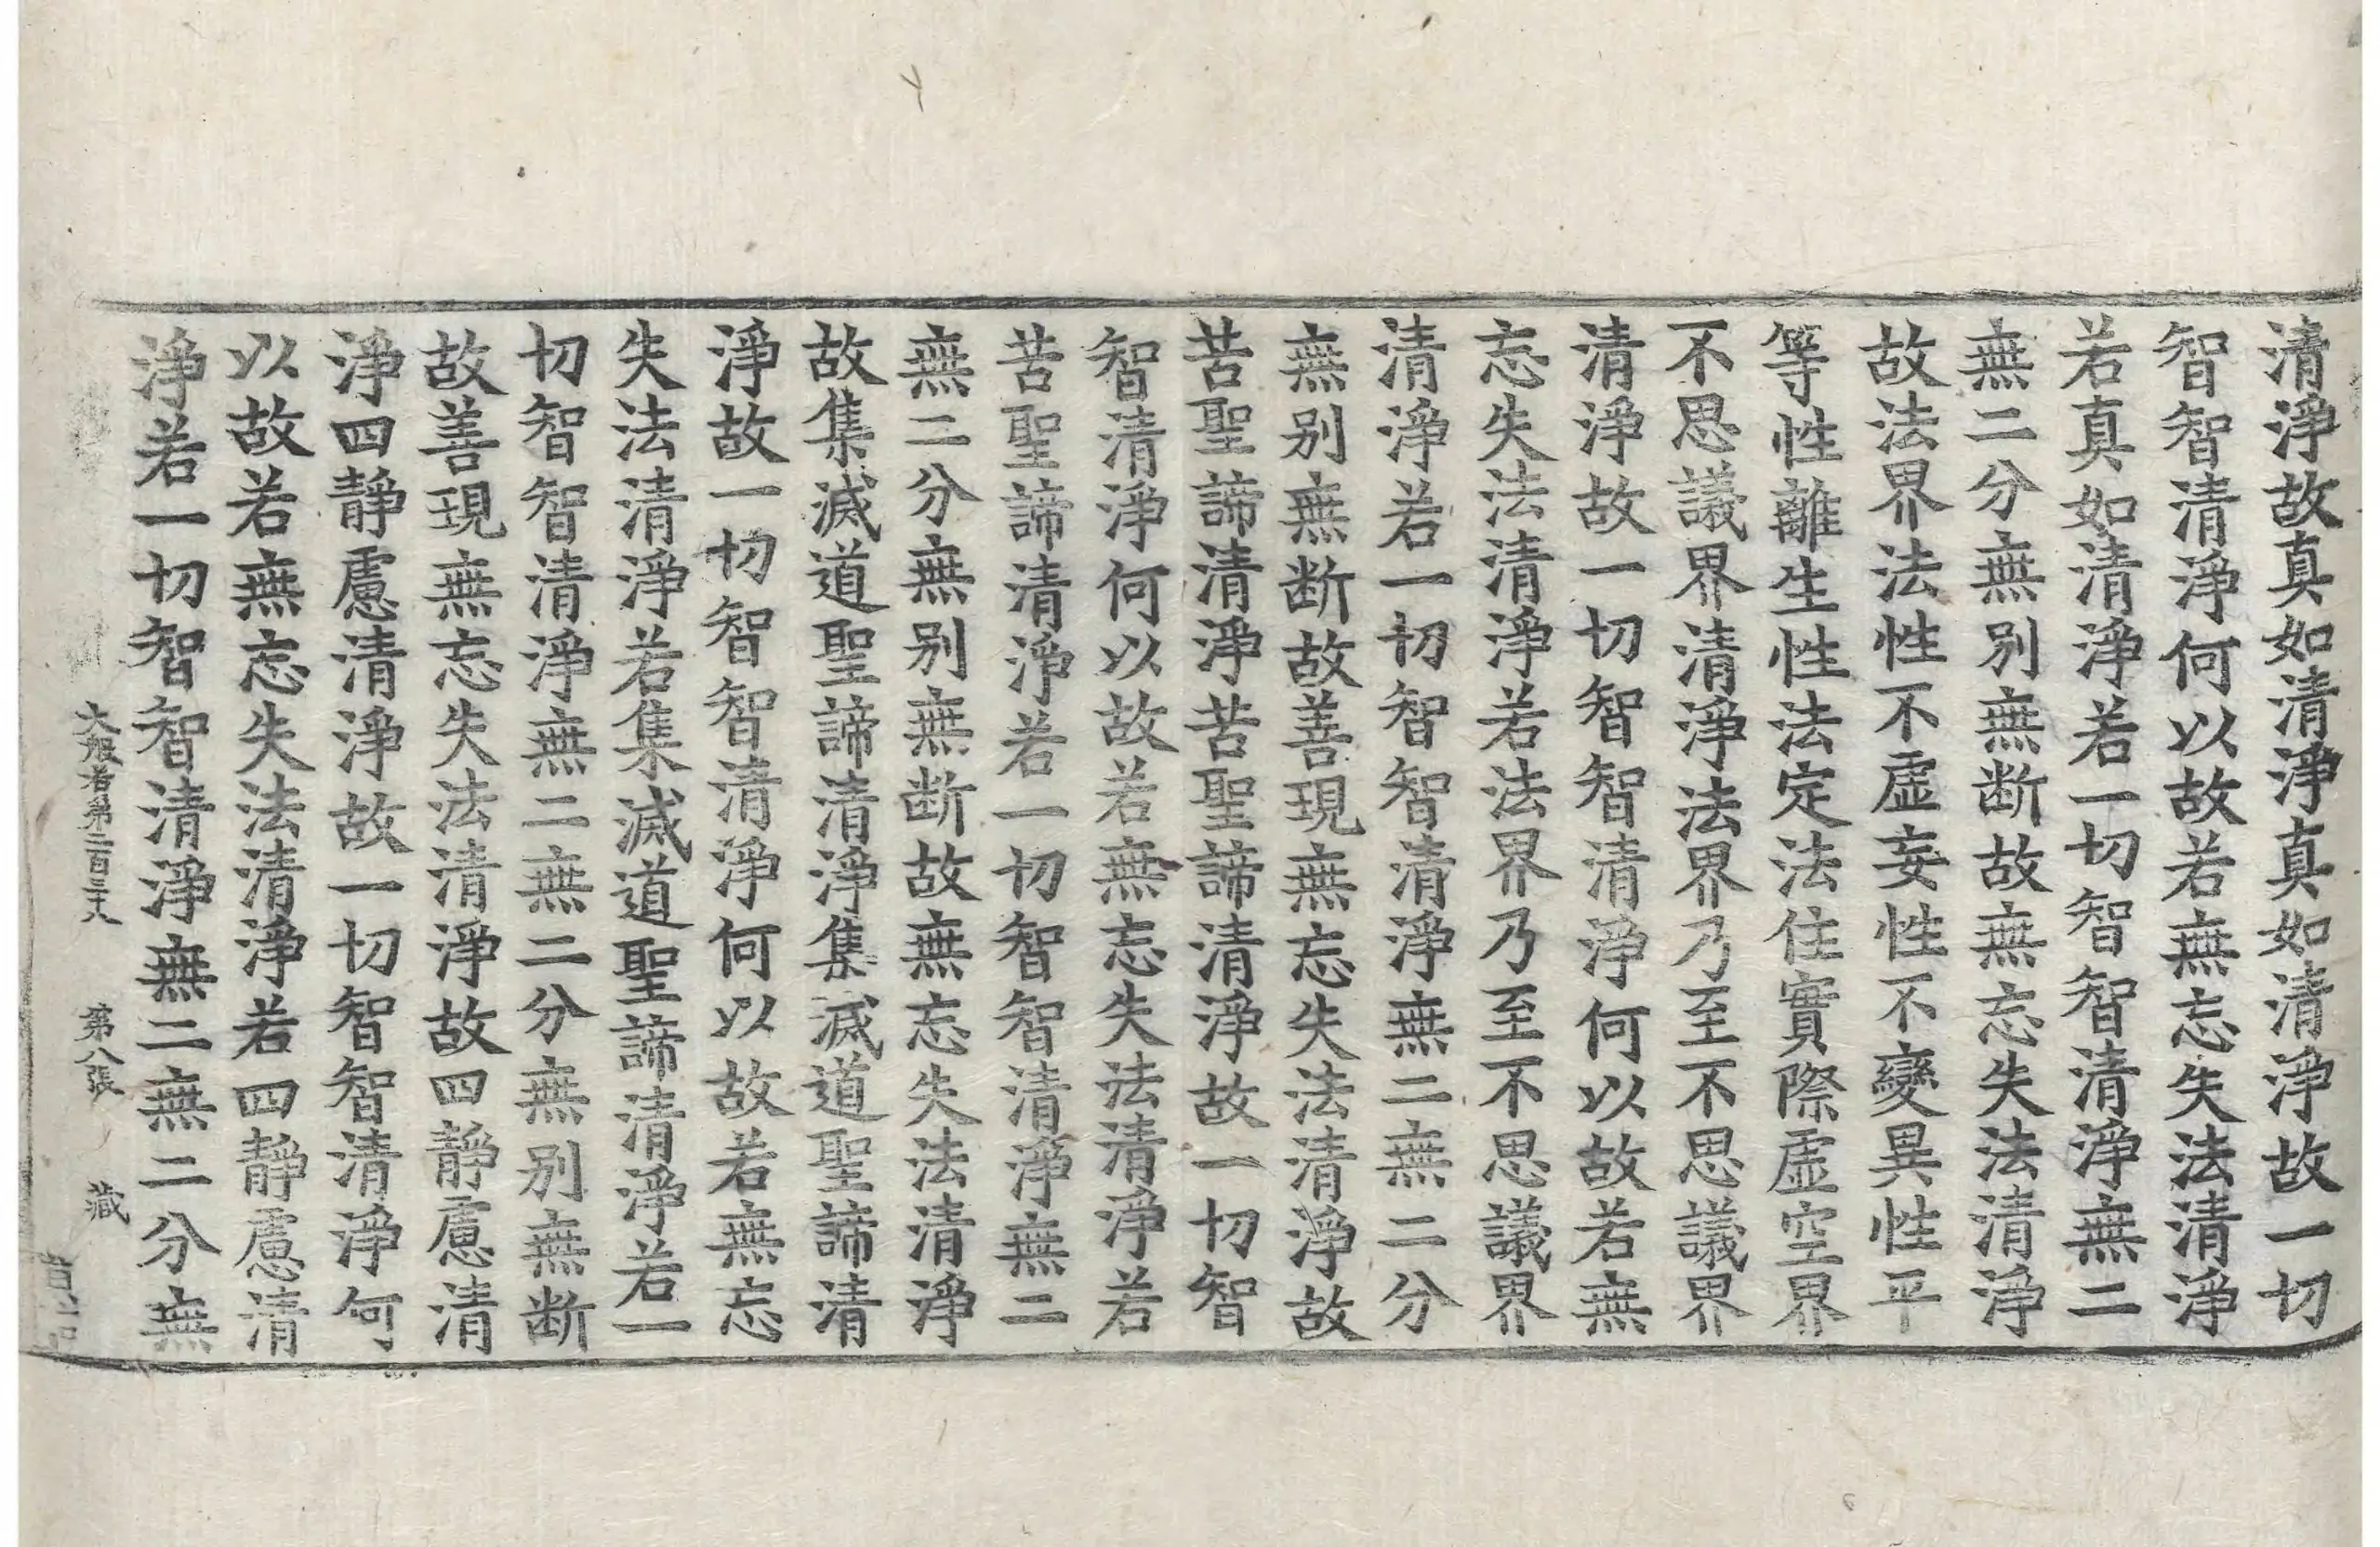 清淨故真如清淨真如清淨故一切
智智清淨何以故若無忘失法清淨
若真如清淨若一切智智清淨無二
無二分無別無断故無忘失法清淨
故法界法性不虛妄性不變異性平
等性離生性法定法住實際虛空界
不思議界清淨法界乃至不思議界
清淨故一切智智清淨何以故若無
忘失法清淨若法界乃至不思議界
清淨若一切智智清淨無二無二分
無別無断故善現無忘失法清淨故
苦聖諦清淨苦聖諦清淨故一切智
智清淨何以故若無忘失法清淨若
苦聖諦清淨若一切智智清淨無二
無二分無別無断故無忘失法清淨
故集滅道聖諦清淨集滅道聖諦清
淨故一切智智清淨何以故若無忘
失法清淨若集滅道聖諦清淨若一
切智智清淨無二無二分無別無断
故善現無忘失法清淨故四靜慮清
淨四靜慮清淨故一切智智清淨何
以故若無忘失法清淨若四靜慮清
淨若一切智智清淨無二無二分無
大般若第二百三十八 第八張 藏